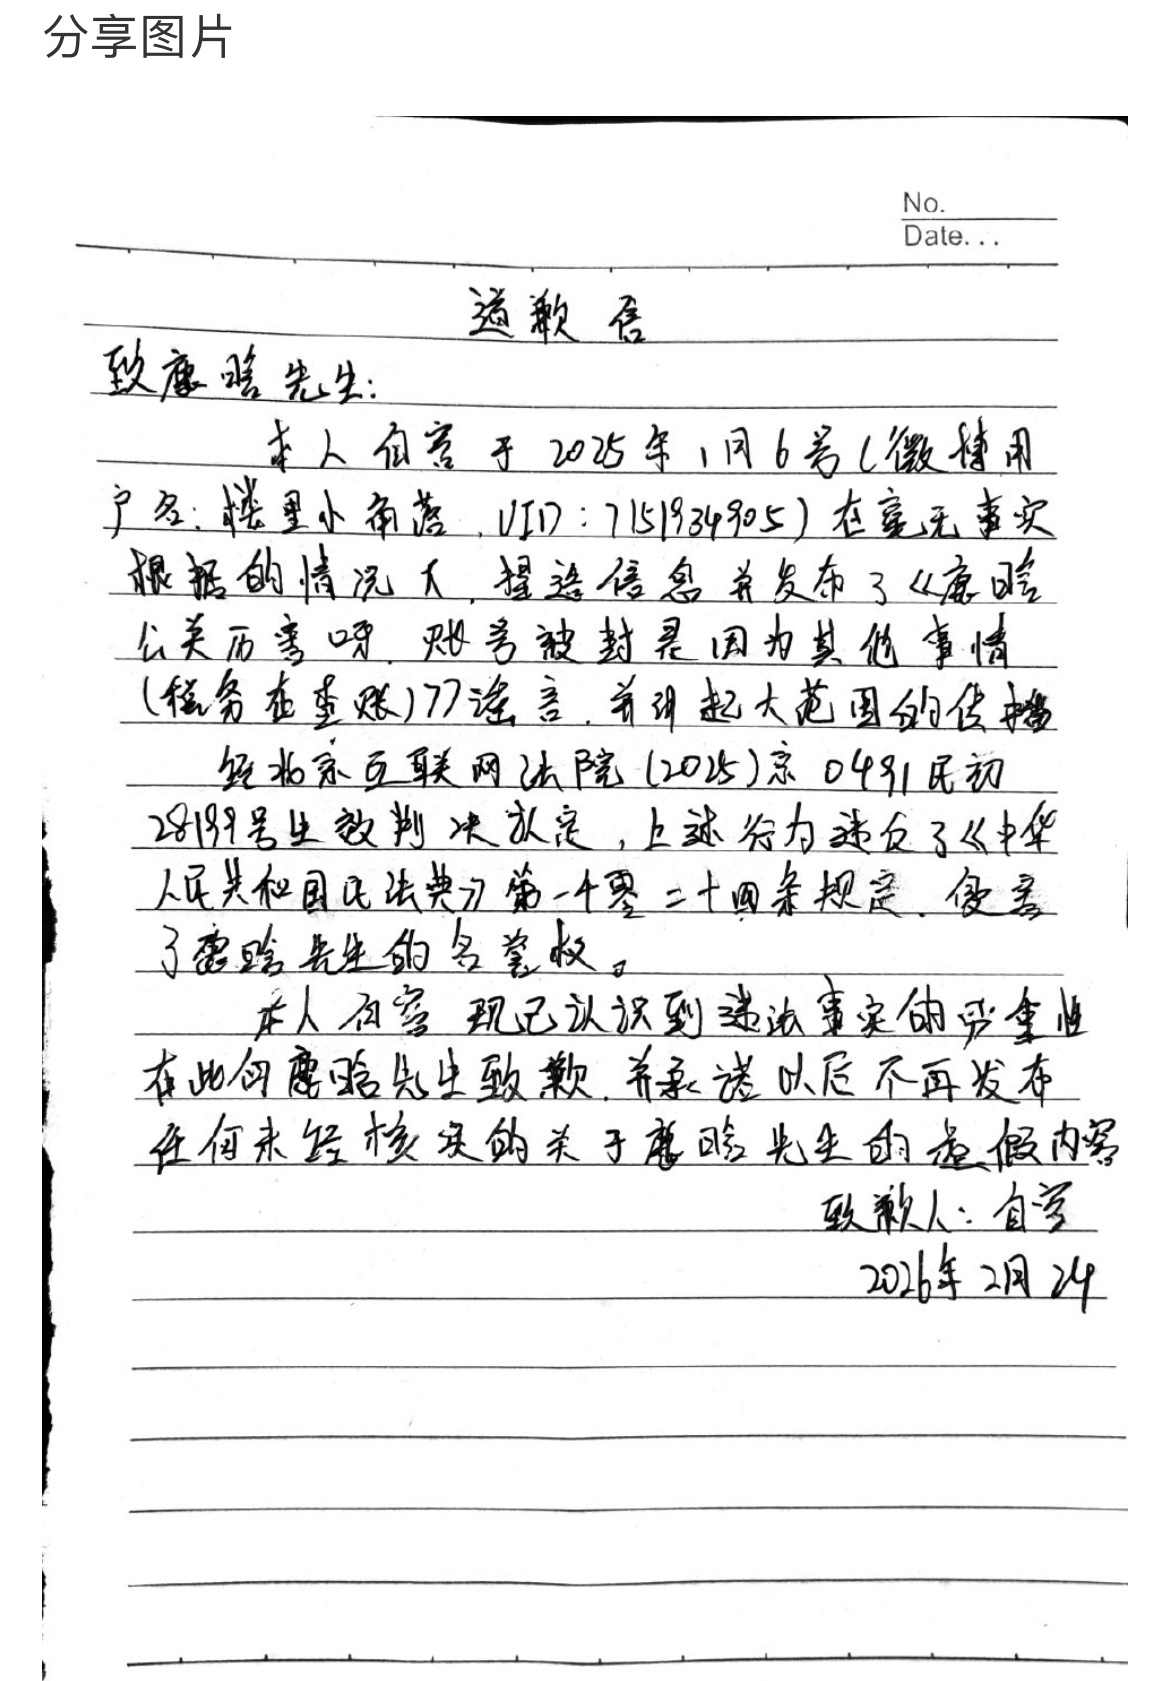 分享图片
No.
Date...
道歉信
致鹿晗先生:
本人自容于2025年1月6号(微博用
户名:楼里小角落,UID:7151934905)在毫无事实
根据的情况下,捏造信息并发布了《鹿晗
公关厉害呀,账号被封是因为其他事情
(税务在查账)77谣言,并引起大范围的传播
经北京互联网法院(2025)京0491民初
28199号生效判决认定,上述行为违反了《中华
人民共和国民法典》第一千零二十四条规定,侵害
了鹿晗先生的名誉权。
本人自容 现已认识到违法事实的严重性
在此向鹿晗先生致歉,并承诺以后不再发布
任何未经核实的关于鹿晗先生的虚假内容
致歉人:自容
2026年2月24